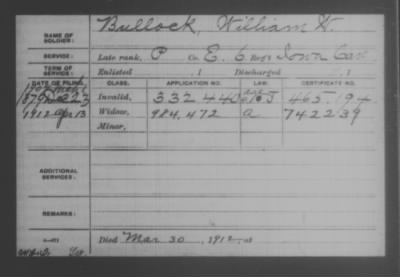 NAME OF SOLDIER: Bullock, William H.
SERVICE: Late rank, P Co. E, 6 Reg't Iowa Cav
TERM OF SERVICE: Enlisted , 1 Discharged , 1
DATE OF FILING. CLASS. APPLICATION NO. LAW. CERTIFICATE NO.
Invalid, 332 440 465.194
1912 Apr 13 Widow, 984,472 a 742239
Minor,
ADDITIONAL SERVICES:
REMARKS:
Died Mar 30, 1912, at